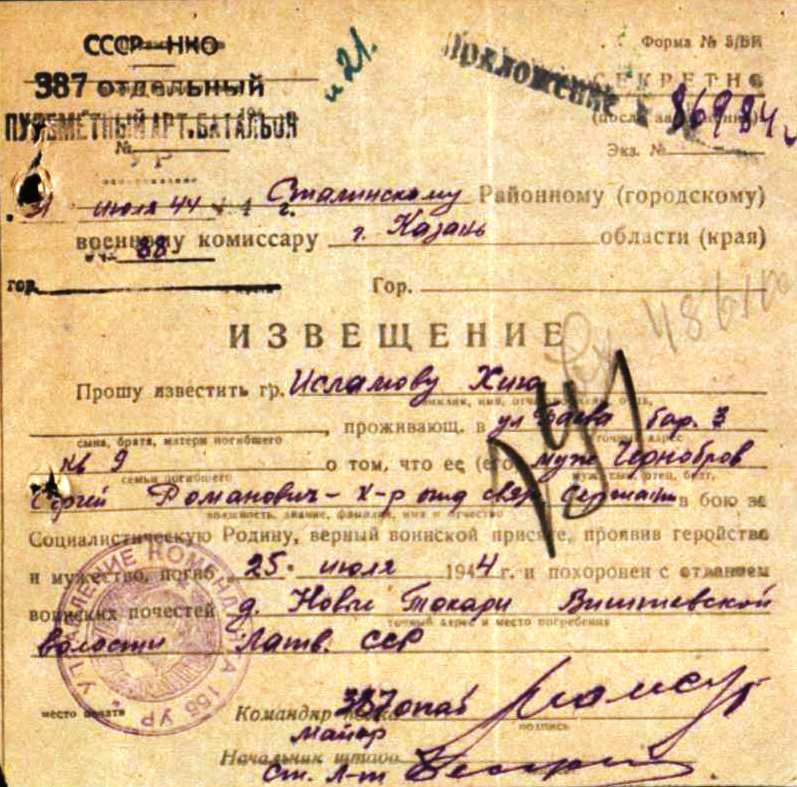 СССР НКО
и 21.
Форма № 5/БИ
387 отдельный
Приложение к
СЕКРЕТНО
ПУЛЕМЕТНЫЙ АРТ. БАТАЛЬОН
86984
№
Экз. №
УР
31 июля 44 г. Сталинскому Районному (городскому)
военному комиссару г. Казань области (края)
№ 88
гор. Гор.
48610
ИЗВЕЩЕНИЕ
Прошу известить гр. Исламову Хию
сына, брата, матери погибшего
, проживающ. в ул Баева бар. 3
точный адрес
кв 9 о том, что ее (его) муж Чернобров
семьи погибшего
муж, сын, отец, брат,
Сергей Романович - к-р отд связи Сержант в бою за
должность, звание, фамилия, имя и отчество
Социалистическую Родину, верный воинской присяге, проявив геройство
и мужество, погиб 25 июля 1944 г. и похоронен с отданием
воинских почестей д. Новые Токари Вишневской
точный адрес и место погребения
волости Латв. ССР
УПРАВЛЕНИЕ КОМЕНДАНТА 155 УР
место печати
Командир полка 387 опаб
майор
подпись
Начальник штаба
Ст. л-т